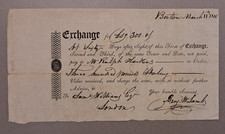 Boston March
Exchange for £ 300 St
At Sixty Days after sight of this First of Exchange,
Second and Third, of the same Tenor and Date, not paid,
pay to Mr Ralph
Three Hundred Pounds Sterling
Value received, and charge the same, with or without further
Advice, to
Your humble Servant
To
Sam Williams Esq
London